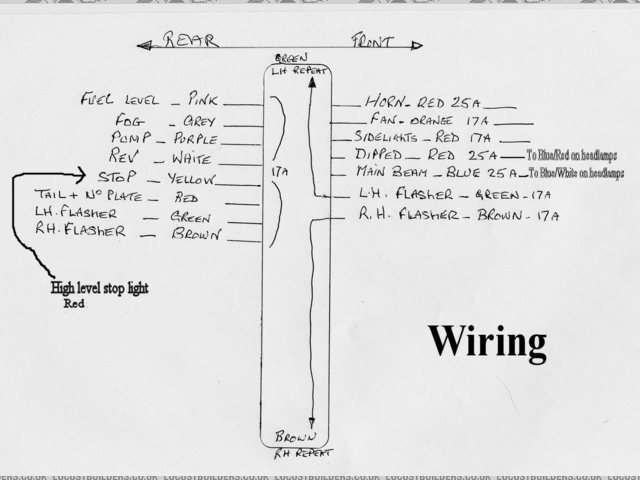 REAR
FRONT
GREEN
LH REPEAT
FUEL LEVEL - PINK
FOG - GREY
PUMP - PURPLE
REV - WHITE
STOP - YELLOW
TAIL + Nº PLATE - RED
LH. FLASHER - GREEN
RH. FLASHER - BROWN
17A
High level stop light
Red
HORN - RED 25A
FAN - ORANGE 17A
SIDELIGHTS - RED 17A
DIPPED - RED 25A To Blue/Red on headlamps
MAIN BEAM - BLUE 25A To Blue/White on headlamps
L.H. FLASHER - GREEN - 17A
R.H. FLASHER - BROWN - 17A
Wiring
BROWN
RH REPEAT
LOCUSTBUILDERS.CO.UK LOCUSTBUILDERS.CO.UK LOCUSTBUILDERS.CO.UK